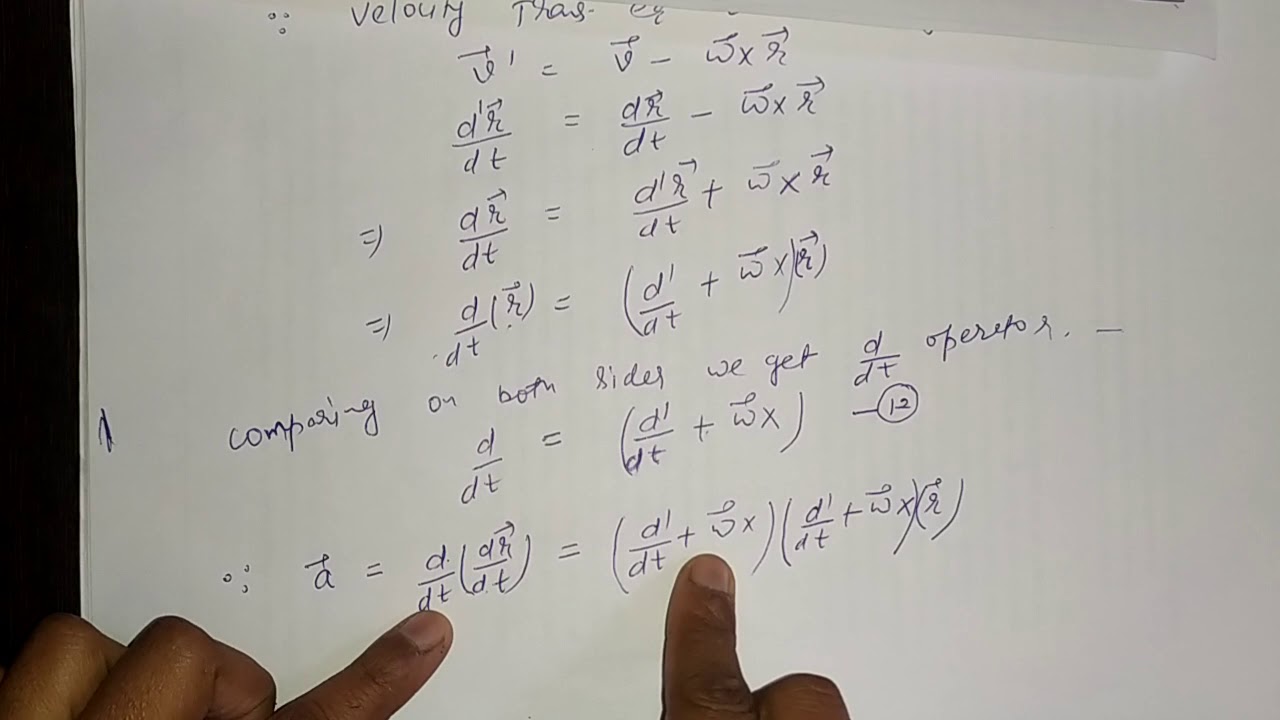 ∵ Velocity Tras. eq
v⃗' = v⃗ - ω⃗ x r⃗
d'r⃗/dt = dr⃗/dt - ω⃗ x r⃗
⇒ dr⃗/dt = d'r⃗/dt + ω⃗ x r⃗
⇒ d/dt (r⃗) = (d'/dt + ω⃗ x)(r⃗)
comparing on both sides we get d/dt operetor. —
d/dt = (d'/dt + ω⃗ x) —⑫
∵ a⃗ = d/dt (dr⃗/dt) = (d'/dt + ω⃗ x)(d'/dt + ω⃗ x)(r⃗)